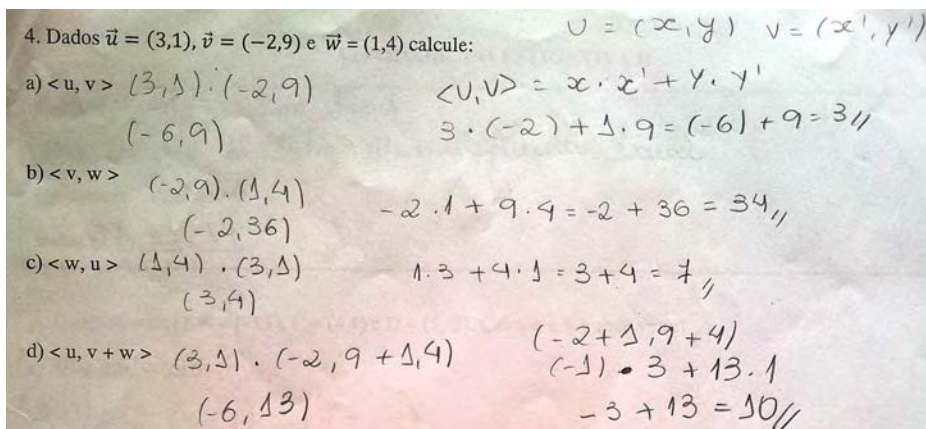 4. Dados u⃗ = (3,1), v⃗ = (−2,9) e w⃗ = (1,4) calcule:
U = (x,y) V = (x',y')
a) < u, v > (3,1).(-2,9)
(-6,9)
<U,V> = x.x' + y.y'
3.(-2)+1.9=(-6)+9=3//
b) < v, w >
(-2,9).(1,4)
(-2,36)
-2.1+9.4=-2+36=34//
c) < w, u > (1,4).(3,1)
(3,4)
1.3+4.1=3+4=7//
d) < u, v + w > (3,1).(-2,9+1,4)
(-6,13)
(-2+1,9+4)
(-1)•3+13.1
-3+13=10//